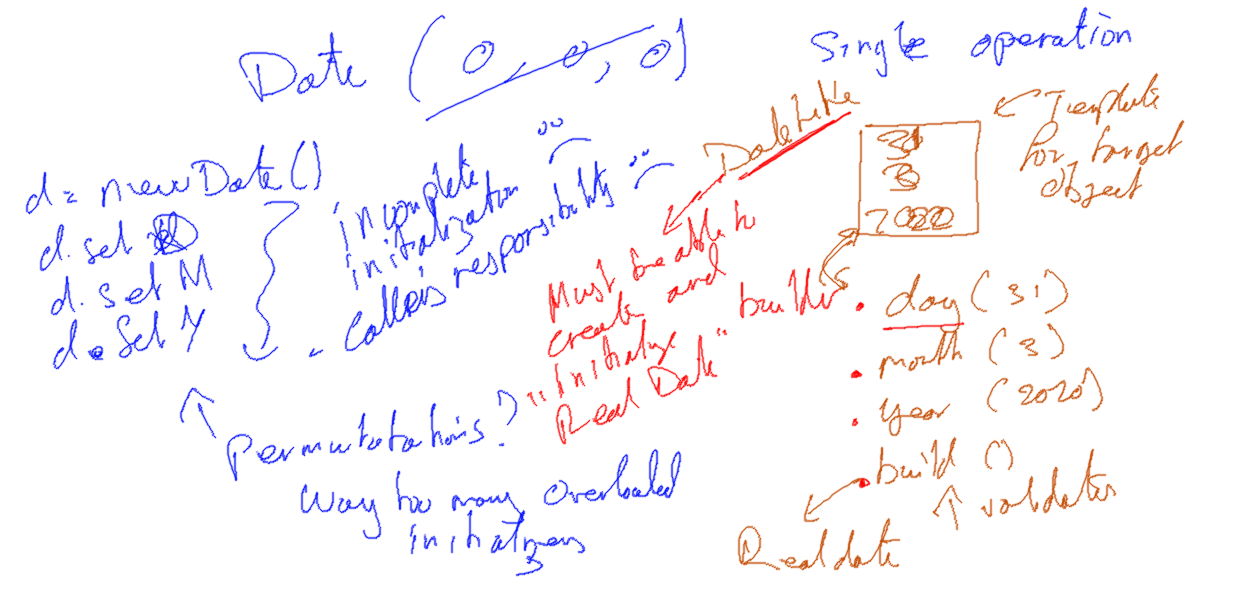 Date (0, 0, 0)
Single operation
d = new Date()
d. set
d. set M
d. set Y
incomplete
initialization
- callers responsibility
Permutatations?
Way too many overloaded
initializers
DateLike
Must be able to
create and
"initialize
Real Date"
31
3
2020
Template
for target
object
builder . day (31)
. month (3)
. year (2020)
. build ()
validates
Real date